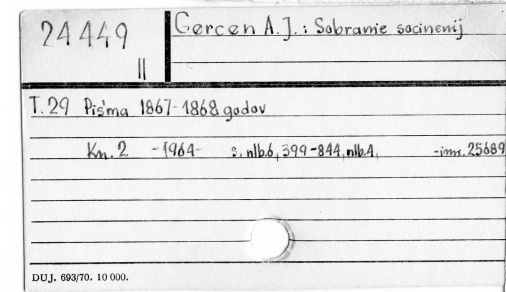 24449 Gercen A.J.: Sobranie socinenij
II
T.29 Piśma 1867-1868 godov
Kn. 2 -1964- s. nlb.6, 399-844, nlb.4, -inv. 25689
DUJ. 693/70. 10 000.